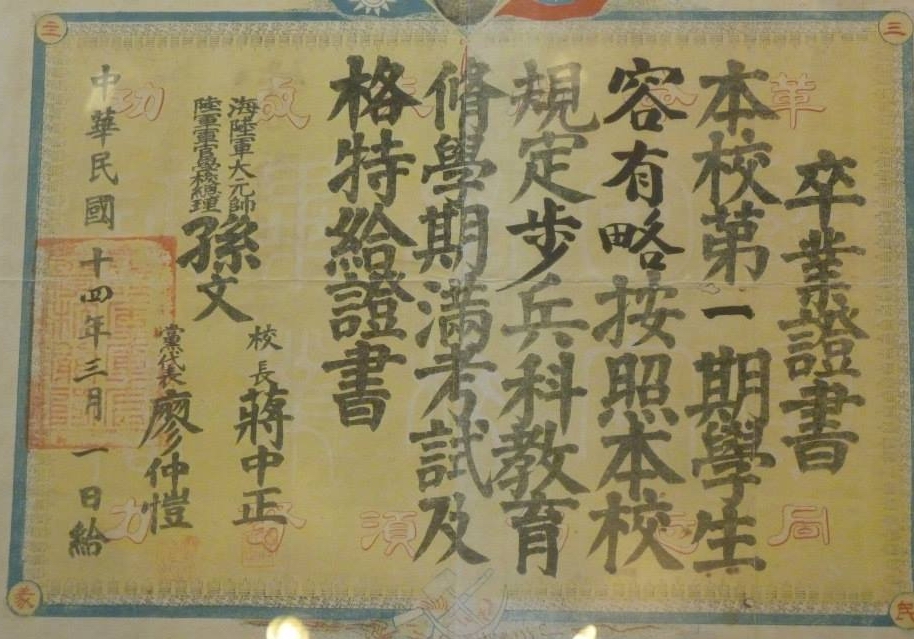 卒業證書
本校第一期學生
容有略按照本校
規定步兵科教育
脩學期滿考試及
格特給證書
海陸軍大元帥
陸軍軍官學校總理
孫文
校長蔣中正
黨代表廖仲愷
中華民國十四年三月一日給
三
民
主
義
革 成功
同志 須努力